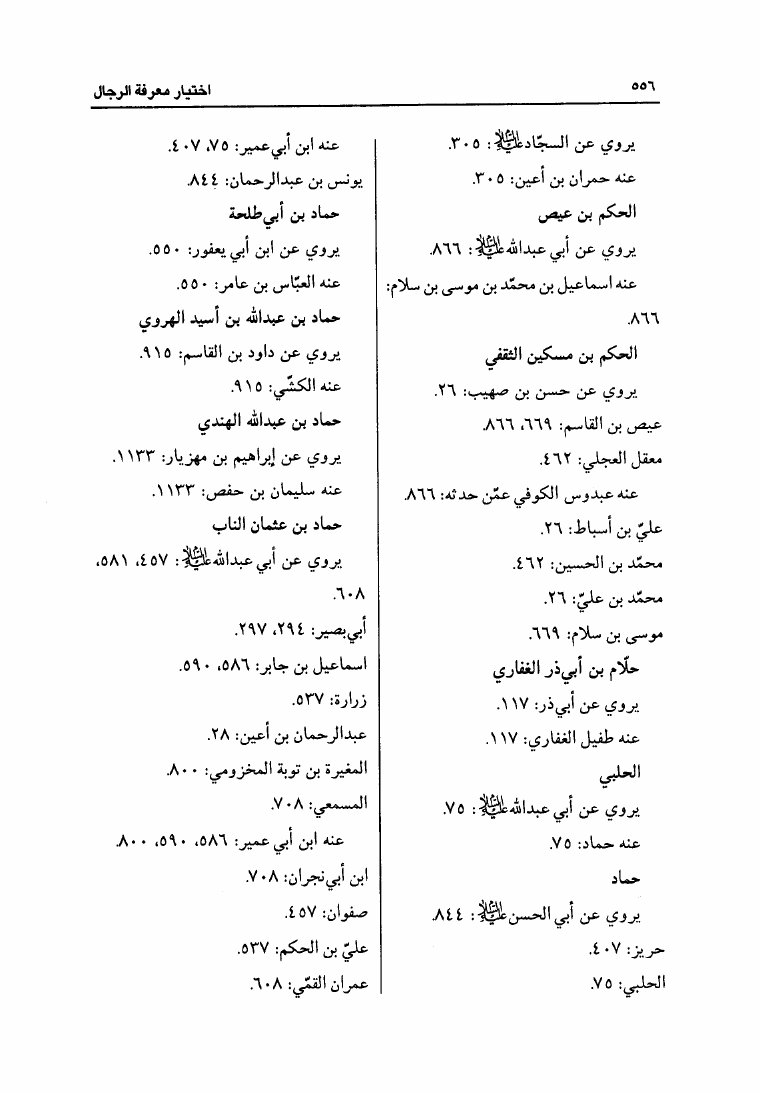 ٥٥٦
اختيار معرفة الرجال
يروي عن السجّاد عليه السلام: ٣٠٥.
عنه حمران بن أعين: ٣٠٥.
الحكم بن عيص
يروي عن أبي عبدالله عليه السلام: ٨٦٦.
عنه اسماعيل بن محمّد بن موسى بن سلام:
٨٦٦.
الحكم بن مسكين الثقفي
يروي عن حسن بن صهيب: ٢٦.
عيص بن القاسم: ٦٦٩، ٨٦٦.
معقل العجلي: ٤٦٢.
عنه عبدوس الكوفي عمّن حدثه: ٨٦٦.
عليّ بن أسباط: ٢٦.
محمّد بن الحسين: ٤٦٢.
محمّد بن عليّ: ٢٦.
موسى بن سلام: ٦٦٩.
حلّام بن أبي‌ذر الغفاري
يروي عن أبي‌ذر: ١١٧.
عنه طفيل الغفاري: ١١٧.
الحلبي
يروي عن أبي عبدالله عليه السلام: ٧٥.
عنه حماد: ٧٥.
حماد
يروي عن أبي الحسن عليه السلام: ٨٤٤.
حريز: ٤٠٧.
الحلبي: ٧٥.
عنه ابن أبي‌عمير: ٧٥، ٤٠٧.
يونس بن عبدالرحمان: ٨٤٤.
حماد بن أبي‌طلحة
يروي عن ابن أبي يعفور: ٥٥٠.
عنه العبّاس بن عامر: ٥٥٠.
حماد بن عبدالله بن أسيد الهروي
يروي عن داود بن القاسم: ٩١٥.
عنه الكشّي: ٩١٥.
حماد بن عبدالله الهندي
يروي عن إبراهيم بن مهزيار: ١١٣٣.
عنه سليمان بن حفص: ١١٣٣.
حماد بن عثمان الناب
يروي عن أبي عبدالله عليه السلام: ٤٥٧، ٥٨١،
٦٠٨.
أبي‌بصير: ٢٩٤، ٢٩٧.
اسماعيل بن جابر: ٥٨٦، ٥٩٠.
زرارة: ٥٣٧.
عبدالرحمان بن أعين: ٢٨.
المغيرة بن توبة المخزومي: ٨٠٠.
المسمعي: ٧٠٨.
عنه ابن أبي عمير: ٥٨٦، ٥٩٠، ٨٠٠.
ابن أبي‌نجران: ٧٠٨.
صفوان: ٤٥٧.
عليّ بن الحكم: ٥٣٧.
عمران القمّي: ٦٠٨.